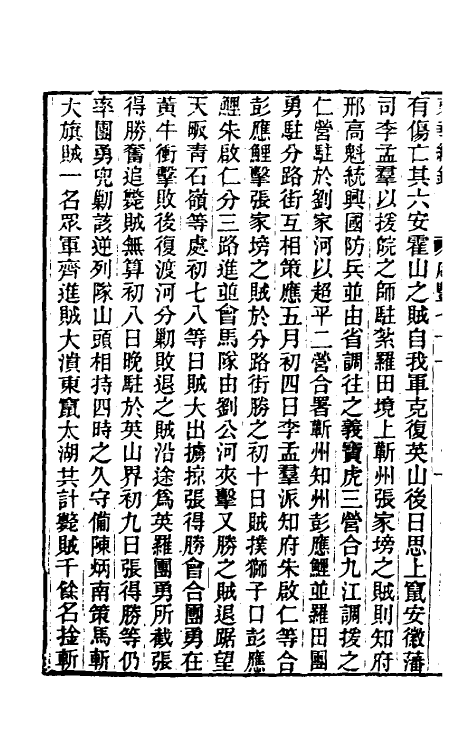 有傷亡其六安霍山之賊自我軍克復英山後日思上竄安徽藩
司李孟羣以援皖之師駐紮羅田境上蘄州張家塝之賊則知府
邢高魁統興國防兵並由省調往之義寶虎三營合九江調撥之
仁營駐於劉家河以超平二營合署蘄州知州彭應鯉並羅田團
勇駐分路街互相策應五月初四日李孟羣派知府朱啟仁等合
彭應鯉擊張家塝之賊於分路街勝之初十日賊撲獅子口彭應
鯉朱啟仁分三路進並會馬隊由劉公河夾擊又勝之賊退踞望
天畈青石嶺等處初七八等日賊大出擄掠張得勝會合團勇在
黃牛衝擊敗後復渡河分勦敗退之賊沿途為英羅團勇所截張
得勝奮追斃賊無算初八日晚駐於英山界初九日張得勝等仍
率團勇兜勦該逆列隊山頭相持四時之久守備陳炳南策馬斬
大旗賊一名眾軍齊進賊大潰東竄太湖共計斃賊千餘名搶斬